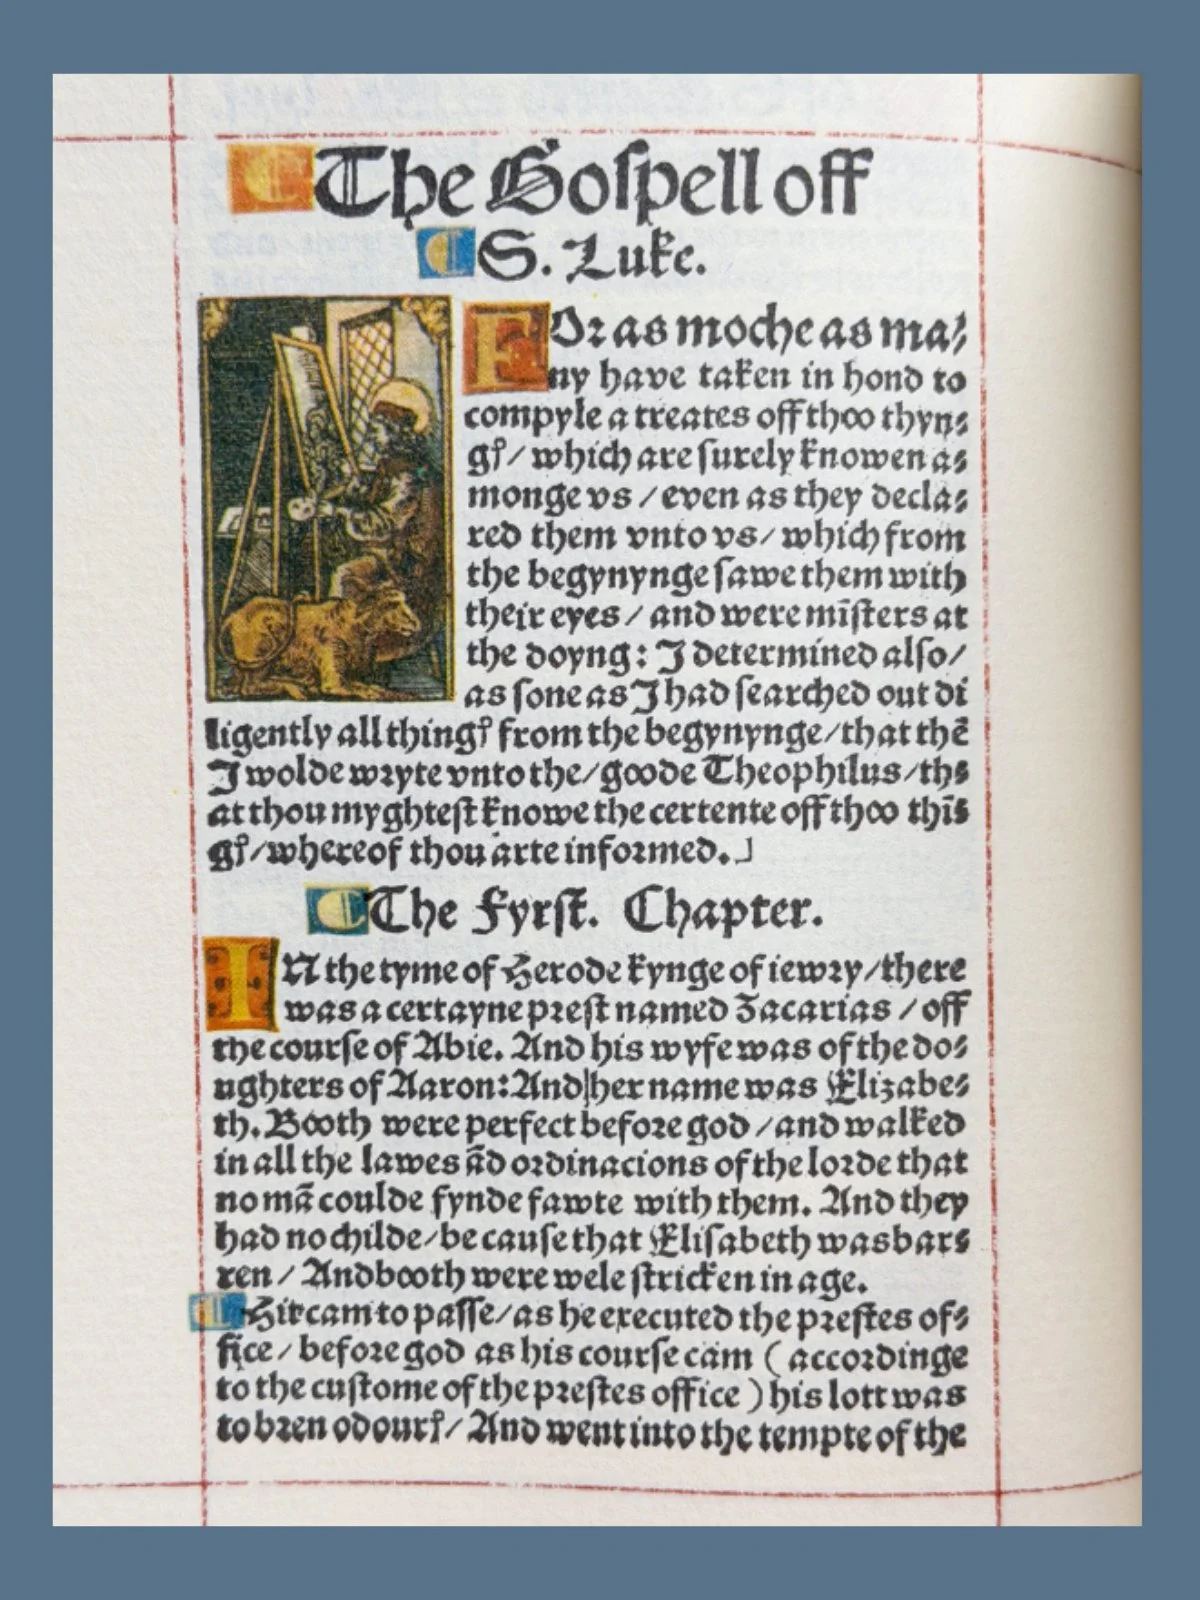 The Gospell off
S. Luke.
FOr as moche as ma⸗
ny have taken in hond to
compyle a treates off thoo thyn⸗
gꝭ/ which are surely knowen a⸗
monge vs / even as they decla⸗
red them vnto vs/ which from
the begynynge sawe them with
their eyes / and were mīsters at
the doyng: I determined also/
as sone as I had searched out di
ligently all thingꝭ from the begynynge/that thē
I wolde wryte vnto the/goode Theophilus/th⸗
at thou myghtest knowe the certente off thoo thī⸗
gꝭ/whereof thou arte informed.
The Fyrst. Chapter.
IN the tyme of Herode kynge of iewry/there
was a certayne prest named Zacarias / off
the course of Abie. And his wyfe was of the do⸗
ughters of Aaron: And her name was Elizabe⸗
th. Booth were perfect before god /and walked
in all the lawes ād ordinacions of the lorde that
no mā coulde fynde fawte with them. And they
had no childe/be cause that Elisabeth was bar⸗
ren / And booth were wele stricken in age.
Hit cam to passe/as he executed the prestes of⸗
fice/ before god as his course cam ( accordinge
to the custome of the prestes office ) his lott was
to bren odourꝭ/ And went into the tempte of the